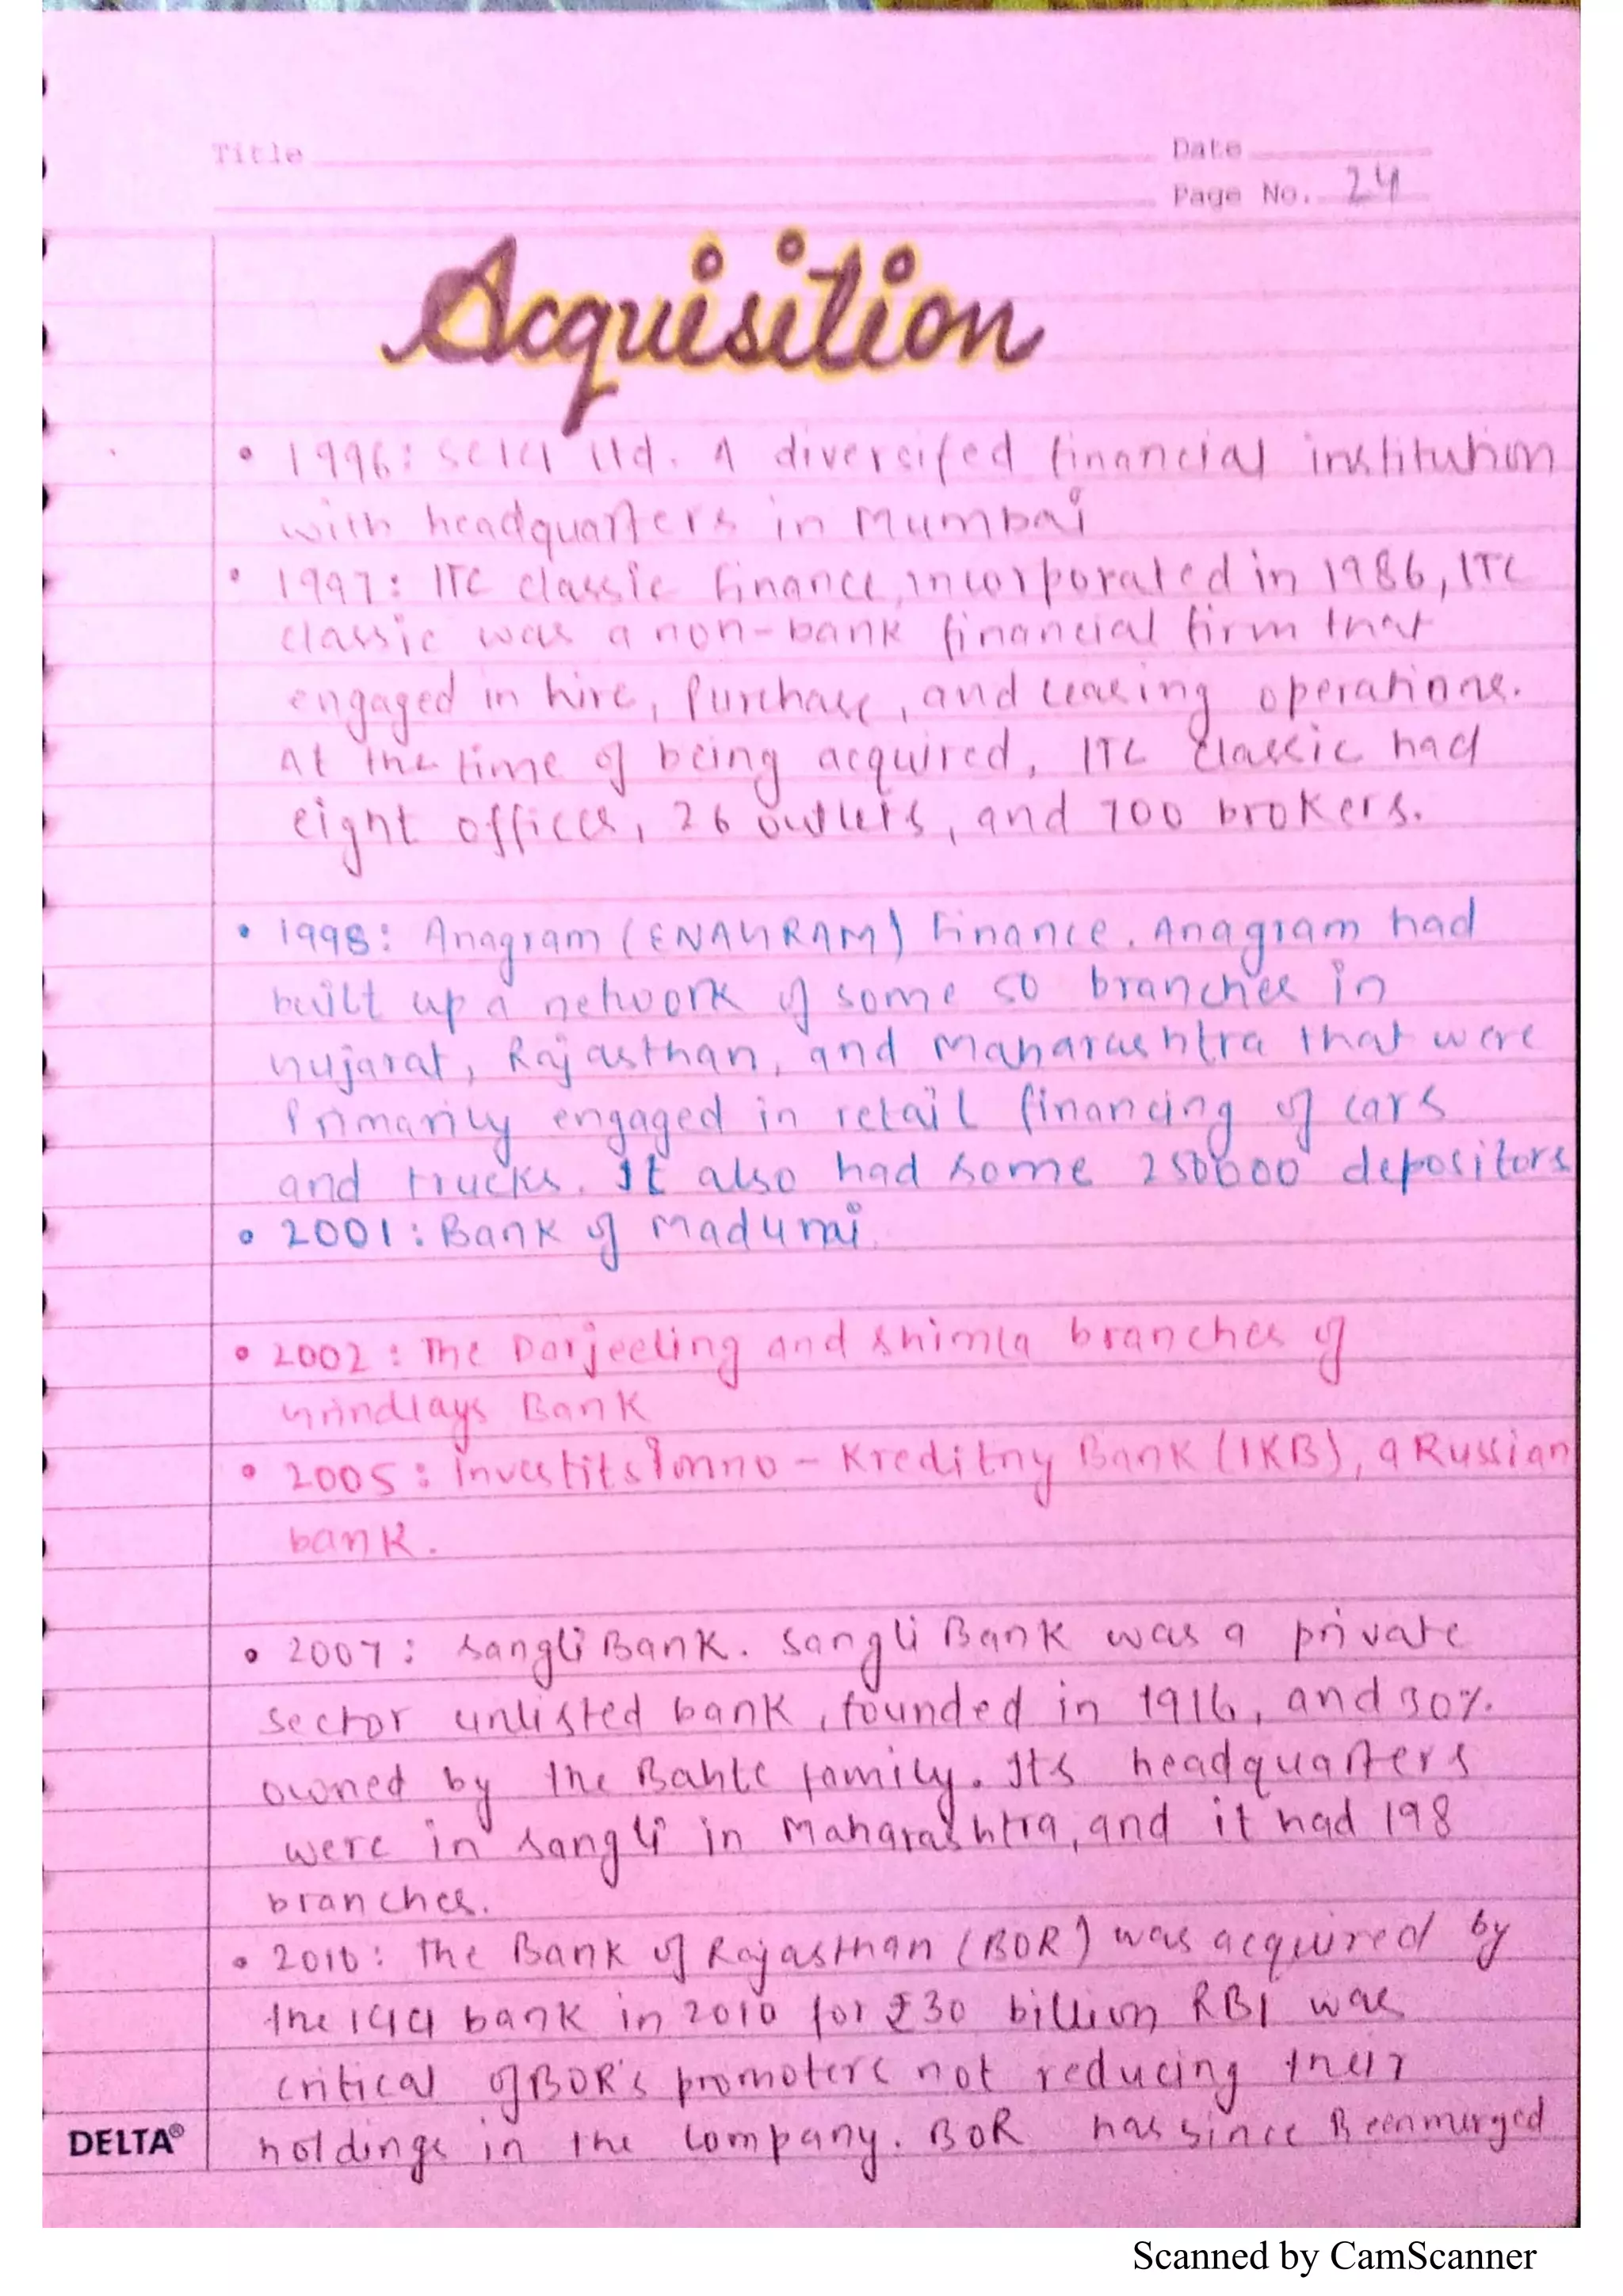 Title
Date
Page No. 24
Acquisition
• 1996: SCICI Ltd. A diversifed financial institution
with headquarters in Mumbai
• 1997: ITC classic finance, incorporated in 1986, ITC
classic was a non-bank financial firm that
engaged in hire, Purchase, and leasing operations.
At the time of being acquired, ITC classic had
eight offices, 26 outlets, and 700 brokers.
• 1998: Anagram (ENAGRAM) Finance. Anagram had
built up a network of some 50 branches in
Gujarat, Rajasthan, and Maharashtra that were
Primarily engaged in retail financing of cars
and trucks. It also had some 250000 depositors
• 2001: Bank of Madurai
• 2002: The Darjeeling and Shimla branches of
Grindlays Bank
• 2005: Investitsionno-Kreditny Bank (IKB), a Russian
bank.
• 2007: Sangli Bank. Sangli Bank was a private
sector unlisted bank, founded in 1916, and 30%
owned by the Bahte family. Its headquarters
were in Sangli in Maharashtra, and it had 198
branches.
• 2010: The Bank of Rajasthan (BOR) was acquired by
the ICICI bank in 2010 for ₹30 billion RBI was
critical of BOR's promoters not reducing their
holdings in the company. BOR has since Been merged
DELTA®
Scanned by CamScanner